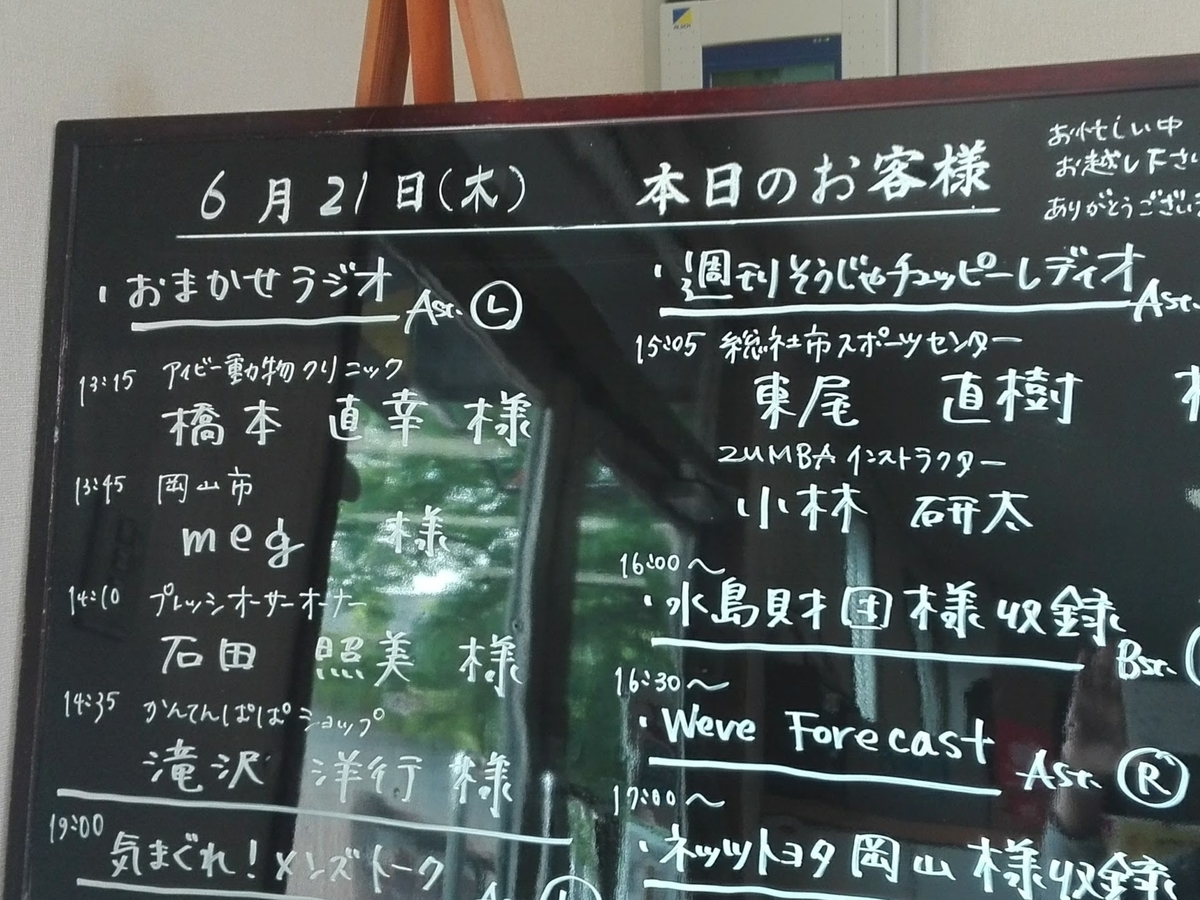 6月21日(木) 本日のお客様
お忙しい中
お越し下さい
ありがとうござい
・おまかせラジオ Ast. Ⓛ
13:15 アイビー動物クリニック
橋本 直幸 様
13:45 岡山市
meg 様
14:10 プレッシオーサーオーナー
石田 照美 様
14:35 かんてんぱぱショップ
滝沢 洋行 様
19:00 気まぐれ!メンズトーク
・週刊そうじゃチュッピーレディオ Ast.
15:05 総社市スポーツセンター
東尾 直樹
ZUMBA インストラクター
小林 研太
16:00〜
・水島財団様収録 Bst.
16:30〜
・Weve Forecast Ast. Ⓡ
17:00〜
・ネッツトヨタ岡山様収録